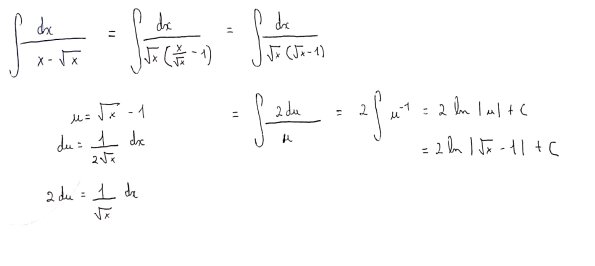 ∫ dx/(x - √x) = ∫ dx/(√x (x/√x - 1)) = ∫ dx/(√x (√x - 1))
u = √x - 1
du = 1/(2√x) dx
2 du = 1/√x dx
= ∫ 2 du/u = 2 ∫ u⁻¹ = 2 ln |u| + C
= 2 ln |√x - 1| + C